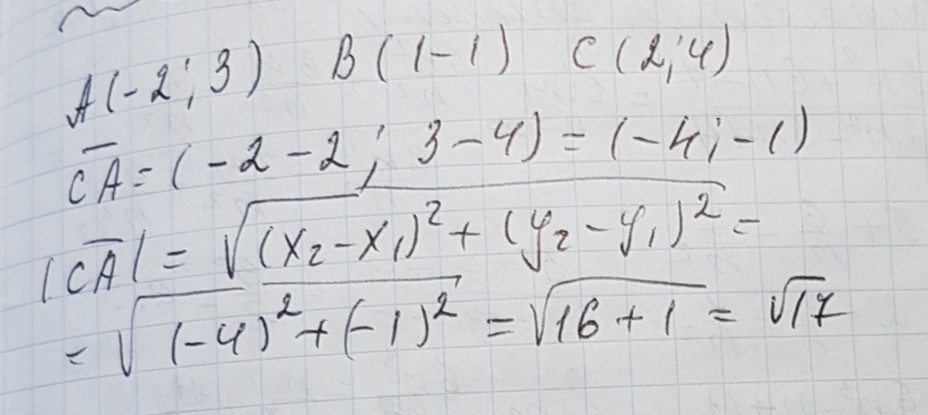 A(-2; 3) B(1-1) C(2; 4)
CA̅ = (-2-2; 3-4) = (-4; -1)
|CA̅| = √(x₂-x₁)² + (y₂-y₁)² =
= √(-4)² + (-1)² = √16 + 1 = √17